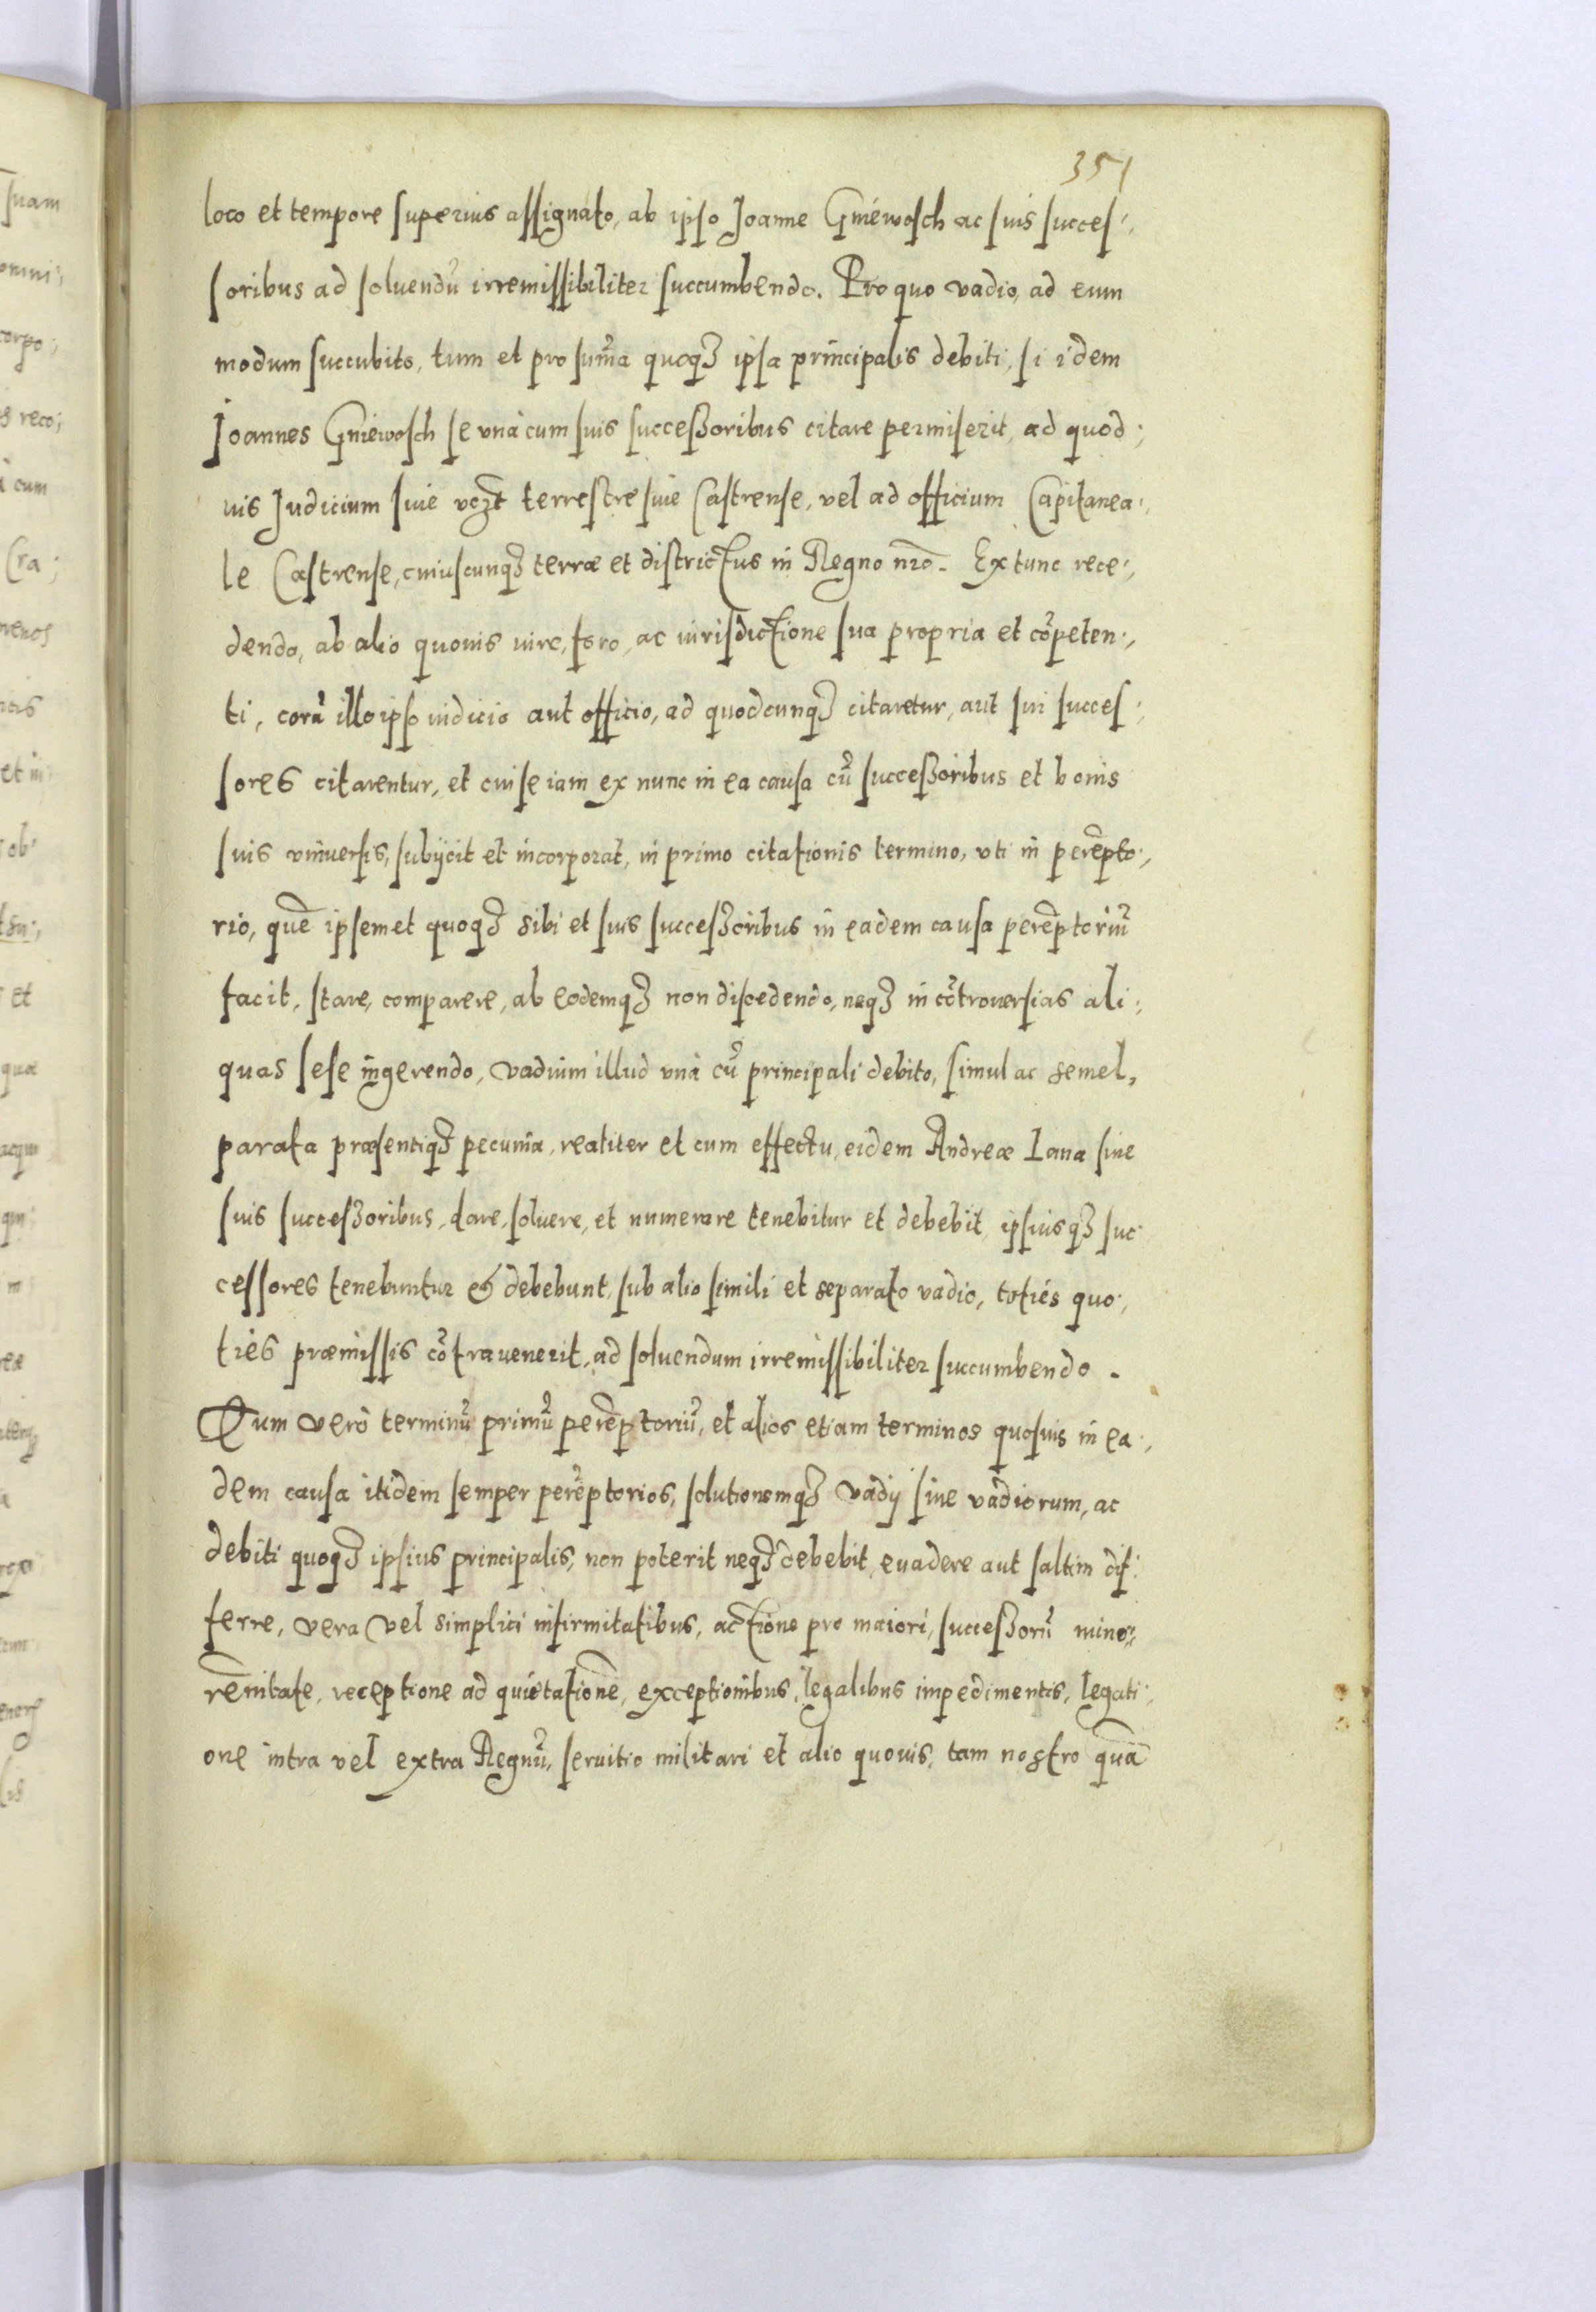 351
loco et tempore superius assignato, ab ipso Joanne Gniewosch ac suis succes:,
soribus ad soluendũ irremissibiliter succumbendo. Pro quo vadio, ad eum
modum succubito, tum et pro sum̃a quoqʒ ipsa principalis debiti, si idem
Joannes Gniewosch se vnà cum suis successoribus citare permiserit, ad quod:,
uis Judicium siue terrestre siue Castrense, vel ad officium Capitanea:,
le Castrense, cuiuscunqʒ terræ et districtus in Regno nr̃o. Ex tunc rece:,
dendo, ab alio quouis iure, foro, ac iurisdictione sua propria et cõpeten:,
ti, corã illo ipso iudicio aut officio, ad quodcunqʒ citaretur, aut sui succes:,
sores citarentur, et cui se iam ex nunc in ea causa cũ successoribus et bonis
suis vniuersis, subijcit et incorporat, in primo citationis termino, vti in perẽpto:,
rio, quẽ ipsemet quoqʒ sibi et suis successoribus in eadem causa perẽptoriũ
facit, stare, comparere, ab eodemqʒ non discedendo, neqʒ in cõtrouersias ali:,
quas sese ingerendo, vadium illud vnà cũ principali debito, simul ac semel,
parata præsentiqʒ pecunia, realiter et cum effectu, eidem Andreæ Lana siue
suis successoribus, dare, soluere, et numerare tenebitur et debebit, ipsiusqʒ suc
cessores tenebuntur & debebunt, sub alio simili et separato vadio, totiés quo:,
tiés præmissis cõtrauenerit, ad soluendum irremissibiliter succumbendo.
Quum verò terminũ primũ perẽptoriũ, et alios etiam terminos quosuis in ea:,
dem causa itidem semper perẽptorios, solutionemqʒ vadij siue vadiorum, ac
debiti quoqʒ ipsius principalis, non poterit neqʒ debebit, euadere aut saltim dif:
ferre, vera vel simplici infirmitatibus, actione pro maiori, successorũ mino:,
rẽnitate, receptione ad quietationẽ, exceptionibus, legalibus impedimentis, legati:
one intra vel extra Regnũ, seruitio militari et alio quouis, tam nostro quã